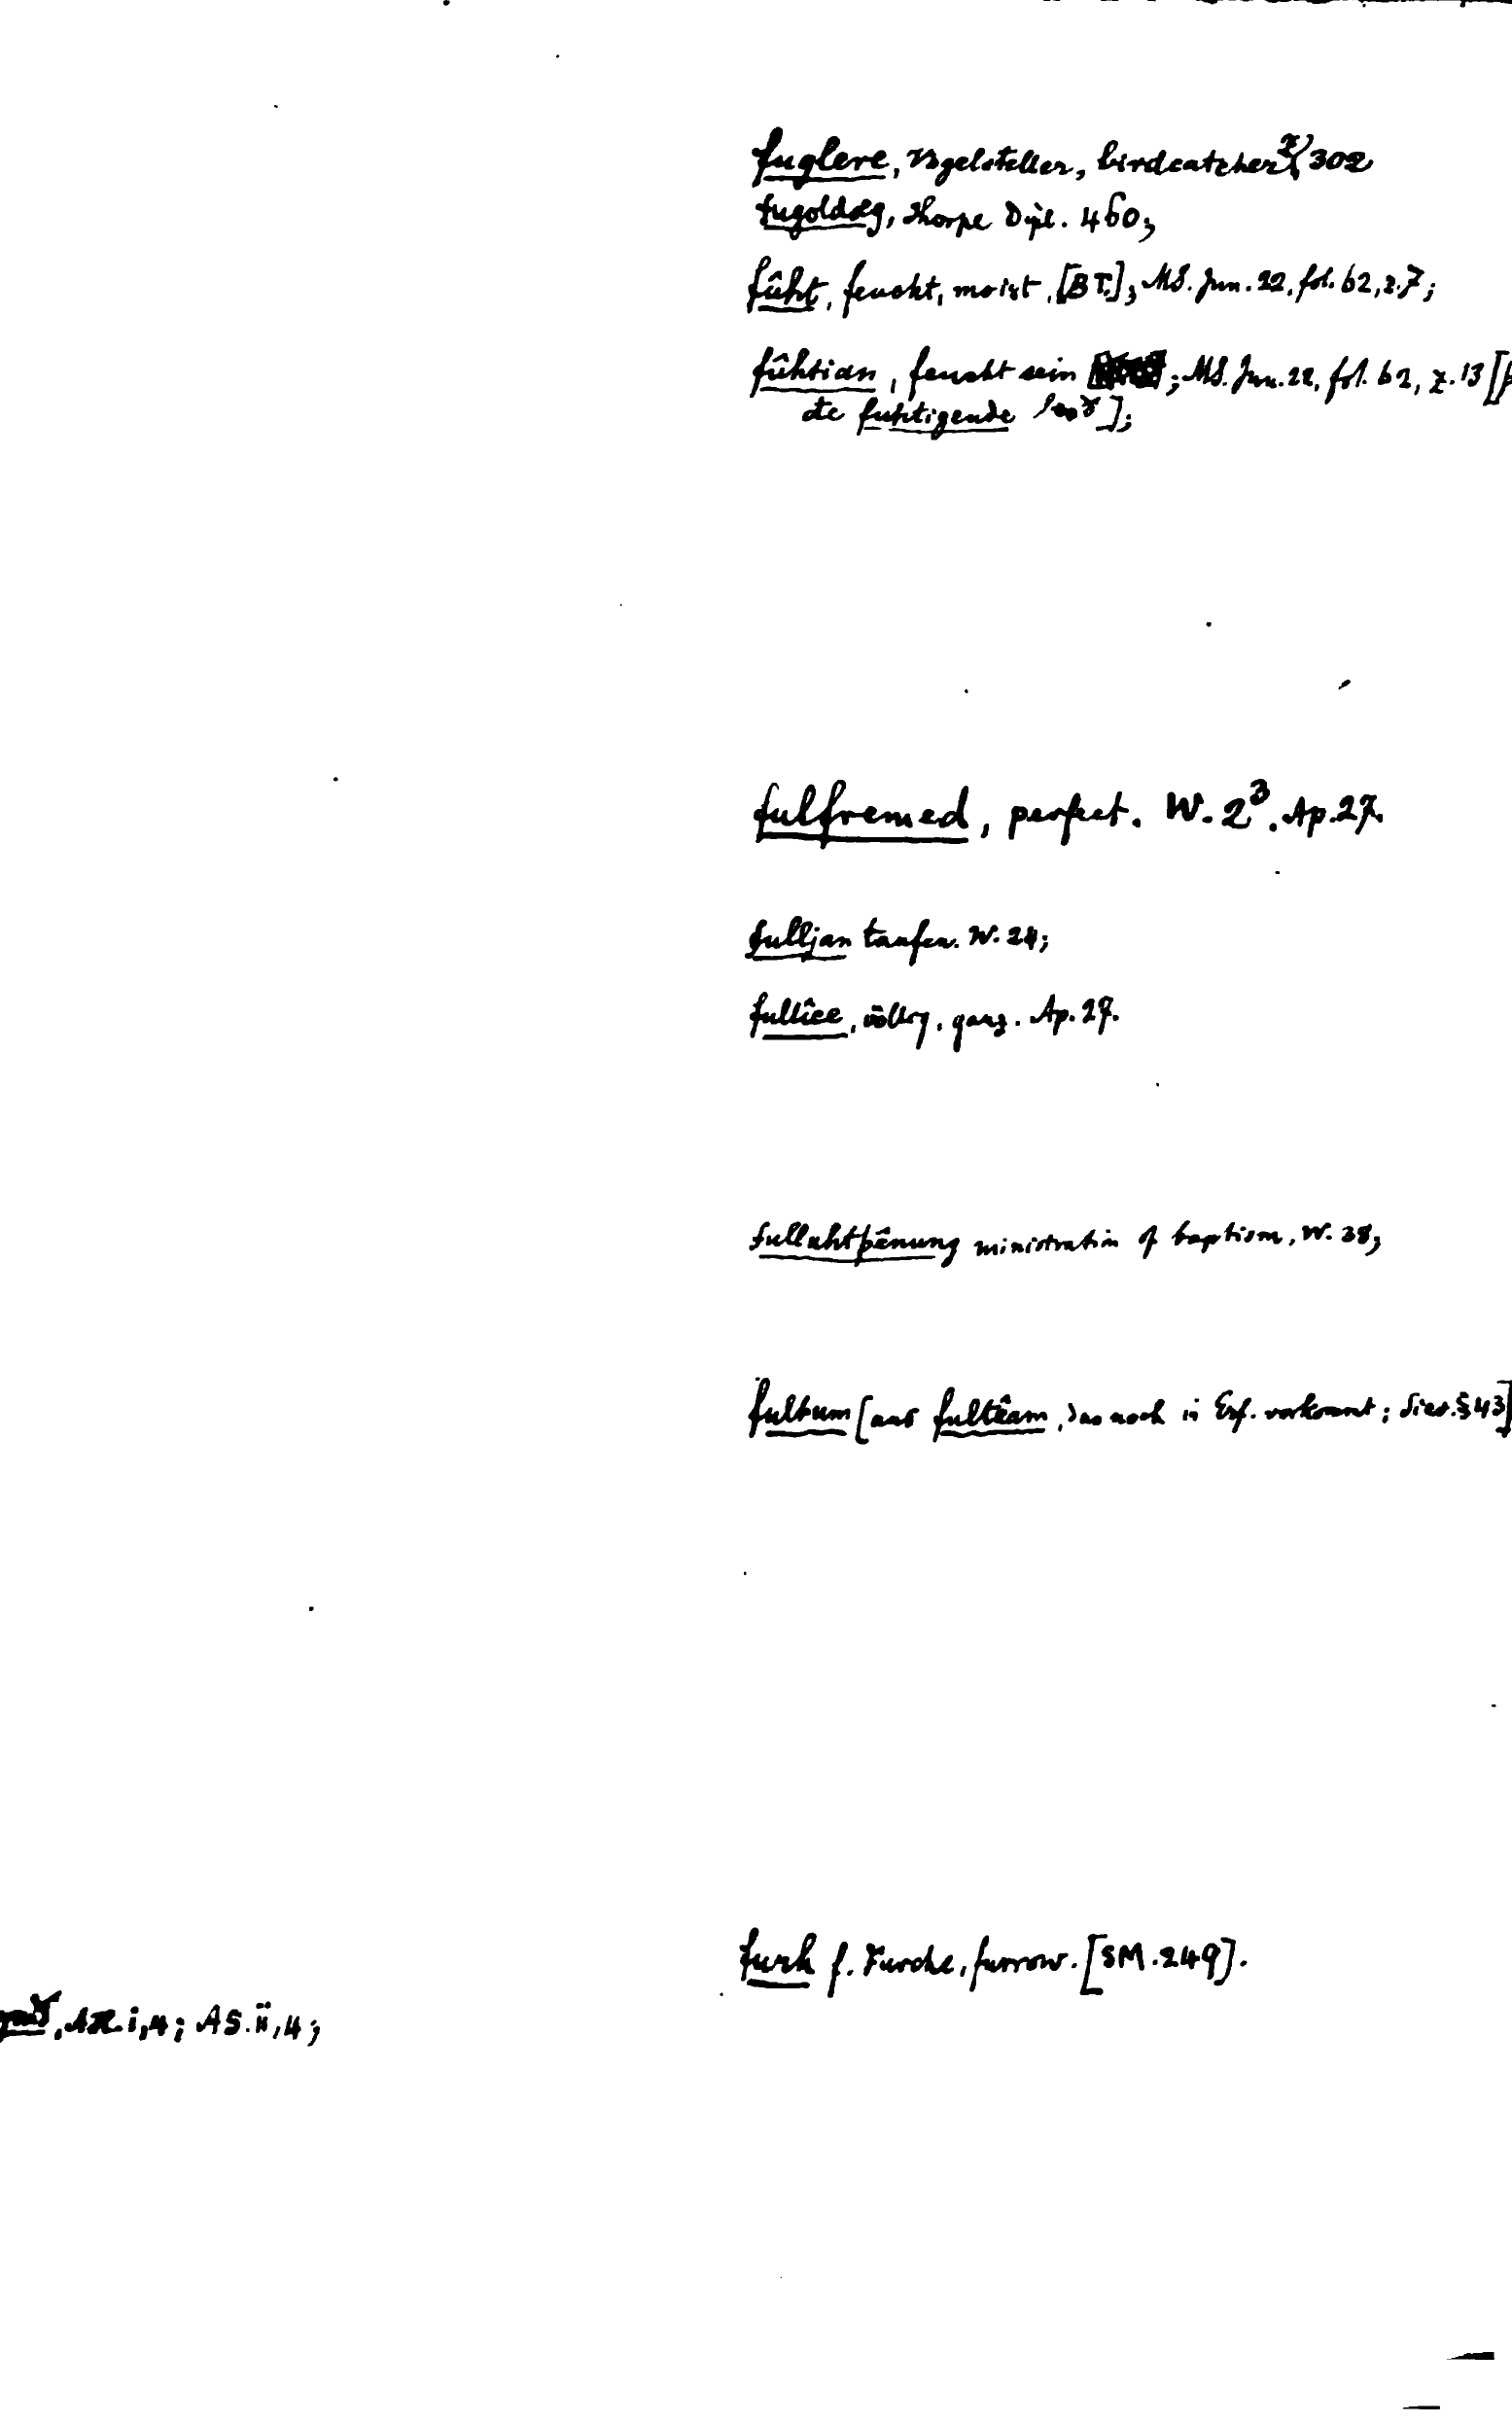 fuglere, Vogelsteller, birdcatcher 302
fugoldæg, Thorpe Dipl. 460;
fûht, feucht, moist, [BT.]; MS. Jun. 22, fol. 62, z. 7;
fûhtian, feucht sein ; MS. Jun. 22, fol. 62, z. 13 [
de fuhtigende ];
fulfremed, perfect. W. 2³. Ap. 27.
fulljan taufen. W. 24;
fullîce, völlig, ganz. Ap. 27.
fulluhtþênung ministration of baptism, W. 38;
fultum [aus fultêam, das noch in Erf. vorkommt; Siev. § 43]
furh f. Furche, furrow. [SM. 249].
i, 4; AS. ii, 4;